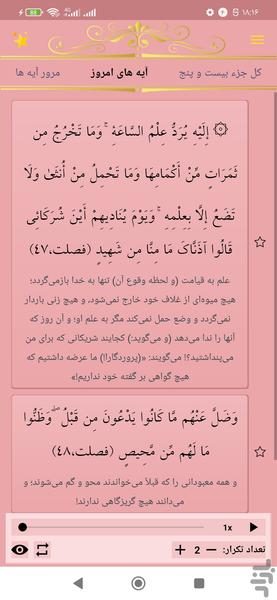 ۱۸:۱۶
کل جزء بیست و پنج
آیه های امروز
مرور آیه ها
۞ إِلَیْهِ یُرَدُّ عِلْمُ السَّاعَهِ ۚ وَمَا تَخْرُجُ مِن
ثَمَرَاتٍ مِّنْ أَکْمَامِهَا وَمَا تَحْمِلُ مِنْ أُنثَیٰ وَلَا
تَضَعُ إِلَّا بِعِلْمِهِ ۚ وَیَوْمَ یُنَادِیهِمْ أَیْنَ شُرَکَائِی
قَالُوا آذَنَّاکَ مَا مِنَّا مِن شَهِیدٍ (فصلت،۴۷)
علم به قیامت (و لحظه وقوع آن) تنها به خدا بازمی‌گردد؛
هیچ میوه‌ای از غلاف خود خارج نمی‌شود، و هیچ زنی باردار
نمی‌گردد و وضع حمل نمی‌کند مگر به علم او؛ و آن روز که
آنها را ندا می‌دهد (و می‌گوید:) کجایند شریکانی که برای من
می‌پنداشتید؟! می‌گویند: «(پروردگارا!) ما عرضه داشتیم که
هیچ گواهی بر گفته خود نداریم!»
وَضَلَّ عَنْهُم مَّا کَانُوا یَدْعُونَ مِن قَبْلُ ۖ وَظَنُّوا
مَا لَهُم مِّن مَّحِیصٍ (فصلت،۴۸)
و همه معبودانی را که قبلاً می‌خواندند محو و گم می‌شوند؛ و
می‌دانند هیچ گریزگاهی ندارند!
1x
تعداد تکرار: 2
بازار